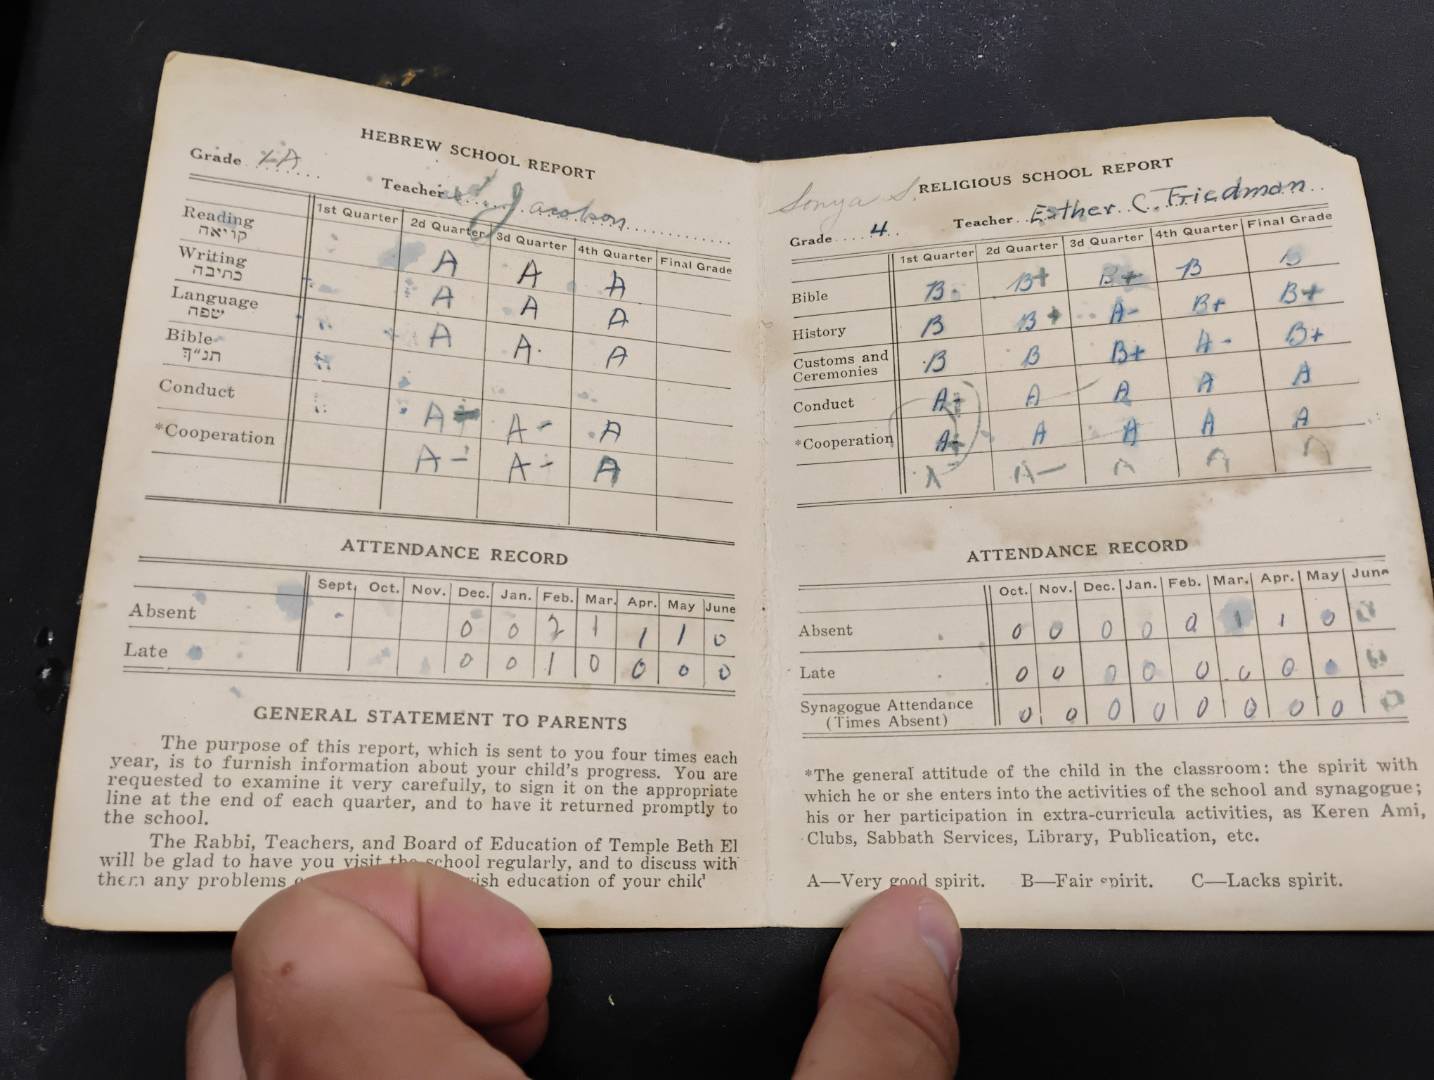 HEBREW SCHOOL REPORT
Grade
Teacher Jacobson
1st Quarter 2d Quarter 3d Quarter 4th Quarter Final Grade
Reading A A A
קריאה
Writing A A A
כתיבה
Language A A- A
שפה
Bible
תנ״ך
Conduct A A- A
*Cooperation A- A- A
ATTENDANCE RECORD
Sept. Oct. Nov. Dec. Jan. Feb. Mar. Apr. May June
Absent 0 0 2 1 1 1 0
Late 0 0 1 0 0 0 0
GENERAL STATEMENT TO PARENTS
The purpose of this report, which is sent to you four times each
year, is to furnish information about your child's progress. You are
requested to examine it very carefully, to sign it on the appropriate
line at the end of each quarter, and to have it returned promptly to
the school.
The Rabbi, Teachers, and Board of Education of Temple Beth El
will be glad to have you visit the school regularly, and to discuss with
them any problems
education of your child
Sonya S.
RELIGIOUS SCHOOL REPORT
Grade 4 Teacher Esther C. Friedman
1st Quarter 2d Quarter 3d Quarter 4th Quarter Final Grade
Bible B B+ B+ B B
History B B+ A- B+ B+
Customs and
Ceremonies B B B+ A- B+
Conduct A A A A
*Cooperation A A A A
A- A A A
ATTENDANCE RECORD
Oct. Nov. Dec. Jan. Feb. Mar. Apr. May June
Absent 0 0 0 0 0 1 1 0 0
Late 0 0 0 0 0 0 0 0
Synagogue Attendance
(Times Absent) 0 0 0 0 0 0 0 0 0
*The general attitude of the child in the classroom: the spirit with
which he or she enters into the activities of the school and synagogue;
his or her participation in extra-curricula activities, as Keren Ami,
Clubs, Sabbath Services, Library, Publication, etc.
A—Very good spirit. B—Fair spirit. C—Lacks spirit.